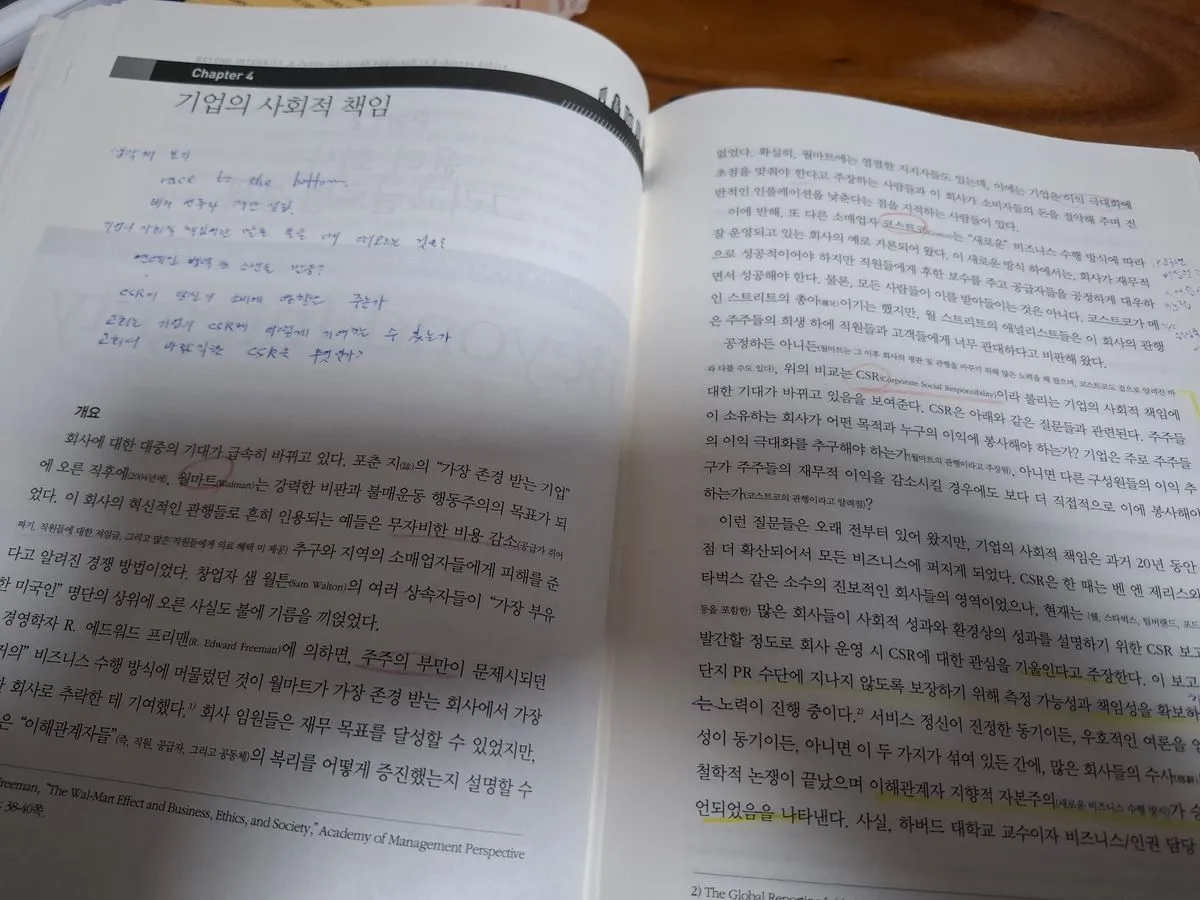 Chapter 4
기업의 사회적 책임
생각해 보기
race to the bottom.
CSR이 당신의 소비에 영향을 주는가
고객은 기업의 CSR에 어떻게 기여할 수 있는가
CSR은 무엇인가?
개요
회사에 대한 대중의 기대가 급속히 바뀌고 있다. 포춘 지(誌)의 “가장 존경 받는 기업”
에 오른 직후에(2004년에), 월마트(Walmart)는 강력한 비판과 불매운동 행동주의의 목표가 되
었다. 이 회사의 혁신적인 관행들로 흔히 인용되는 예들은 무자비한 비용 감소(공급가 쥐어
짜기, 직원들에 대한 저임금, 그리고 많은 직원들에게 의료 혜택 미 제공) 추구와 지역의 소매업자들에게 피해를 준
다고 알려진 경쟁 방법이었다. 창업자 샘 월튼(Sam Walton)의 여러 상속자들이 “가장 부유
한 미국인” 명단의 상위에 오른 사실도 불에 기름을 끼얹었다.
경영학자 R. 에드워드 프리맨(R. Edward Freeman)에 의하면, 주주의 부만이 문제시되던
거의” 비즈니스 수행 방식에 머물렀던 것이 월마트가 가장 존경 받는 회사에서 가장
한 회사로 추락한 데 기여했다.1) 회사 임원들은 재무 목표를 달성할 수 있었지만,
은 “이해관계자들”(즉, 직원, 공급자, 그리고 공동체)의 복리를 어떻게 증진했는지 설명할 수
Freeman, “The Wal-Mart Effect and Business, Ethics, and Society,” Academy of Management Perspective
38-40쪽.
없었다. 확실히, 월마트에는 열렬한 지지자들도 있는데, 이에는 기업은 이익 극대화에
초점을 맞춰야 한다고 주장하는 사람들과 이 회사가 소비자들의 돈을 절약해 주며 전
반적인 인플레이션을 낮춘다는 점을 지적하는 사람들이 있다.
이에 반해, 또 다른 소매업자 코스트코(Costco)는 “새로운” 비즈니스 수행 방식에 따라
잘 운영되고 있는 회사의 예로 거론되어 왔다. 이 새로운 방식 하에서는, 회사가 재무적
으로 성공적이어야 하지만 직원들에게 후한 보수를 주고 공급자들을 공정하게 대우하
면서 성공해야 한다. 물론, 모든 사람들이 이를 받아들이는 것은 아니다. 코스트코가 메
인 스트리트의 총아(寵兒)이기는 했지만, 월 스트리트의 애널리스트들은 이 회사의 관행
은 주주들의 희생 하에 직원들과 고객들에게 너무 관대하다고 비판해 왔다.
공정하든 아니든(월마트는 그 이후 회사의 평판 및 관행을 바꾸기 위해 많은 노력을 해 왔으며, 코스트코도 겉으로 알려진 바
와 다를 수도 있다), 위의 비교는 CSR(Corporate Social Responsibility)이라 불리는 기업의 사회적 책임에
대한 기대가 바뀌고 있음을 보여준다. CSR은 아래와 같은 질문들과 관련된다. 주주들
이 소유하는 회사가 어떤 목적과 누구의 이익에 봉사해야 하는가? 기업은 주로 주주들
의 이익 극대화를 추구해야 하는가(월마트의 관행이라고 주장됨), 아니면 다른 구성원들의 이익 추
구가 주주들의 재무적 이익을 감소시킬 경우에도 보다 더 직접적으로 이에 봉사해야
하는가(코스트코의 관행이라고 알려짐)?
이런 질문들은 오래 전부터 있어 왔지만, 기업의 사회적 책임은 과거 20년 동안
점 더 확산되어서 모든 비즈니스에 퍼지게 되었다. CSR은 한 때는 벤 엔 제리스와
타벅스 같은 소수의 진보적인 회사들의 영역이었으나, 현재는 (쉘, 스타벅스, 팀버랜드, 포드
등을 포함한) 많은 회사들이 사회적 성과와 환경상의 성과를 설명하기 위한 CSR 보고
발간할 정도로 회사 운영 시 CSR에 대한 관심을 기울인다고 주장한다. 이 보고
단지 PR 수단에 지나지 않도록 보장하기 위해 측정 가능성과 책임성을 확보하
는 노력이 진행 중이다.2) 서비스 정신이 진정한 동기이든, 우호적인 여론을 얻
성이 동기이든, 아니면 이 두 가지가 섞여 있든 간에, 많은 회사들의 수사(修辭)
철학적 논쟁이 끝났으며 이해관계자 지향적 자본주의(새로운 비즈니스 수행 방식)가 승
언되었음을 나타낸다. 사실, 하버드 대학교 교수이자 비즈니스/인권 담당
2) The Global Reporting